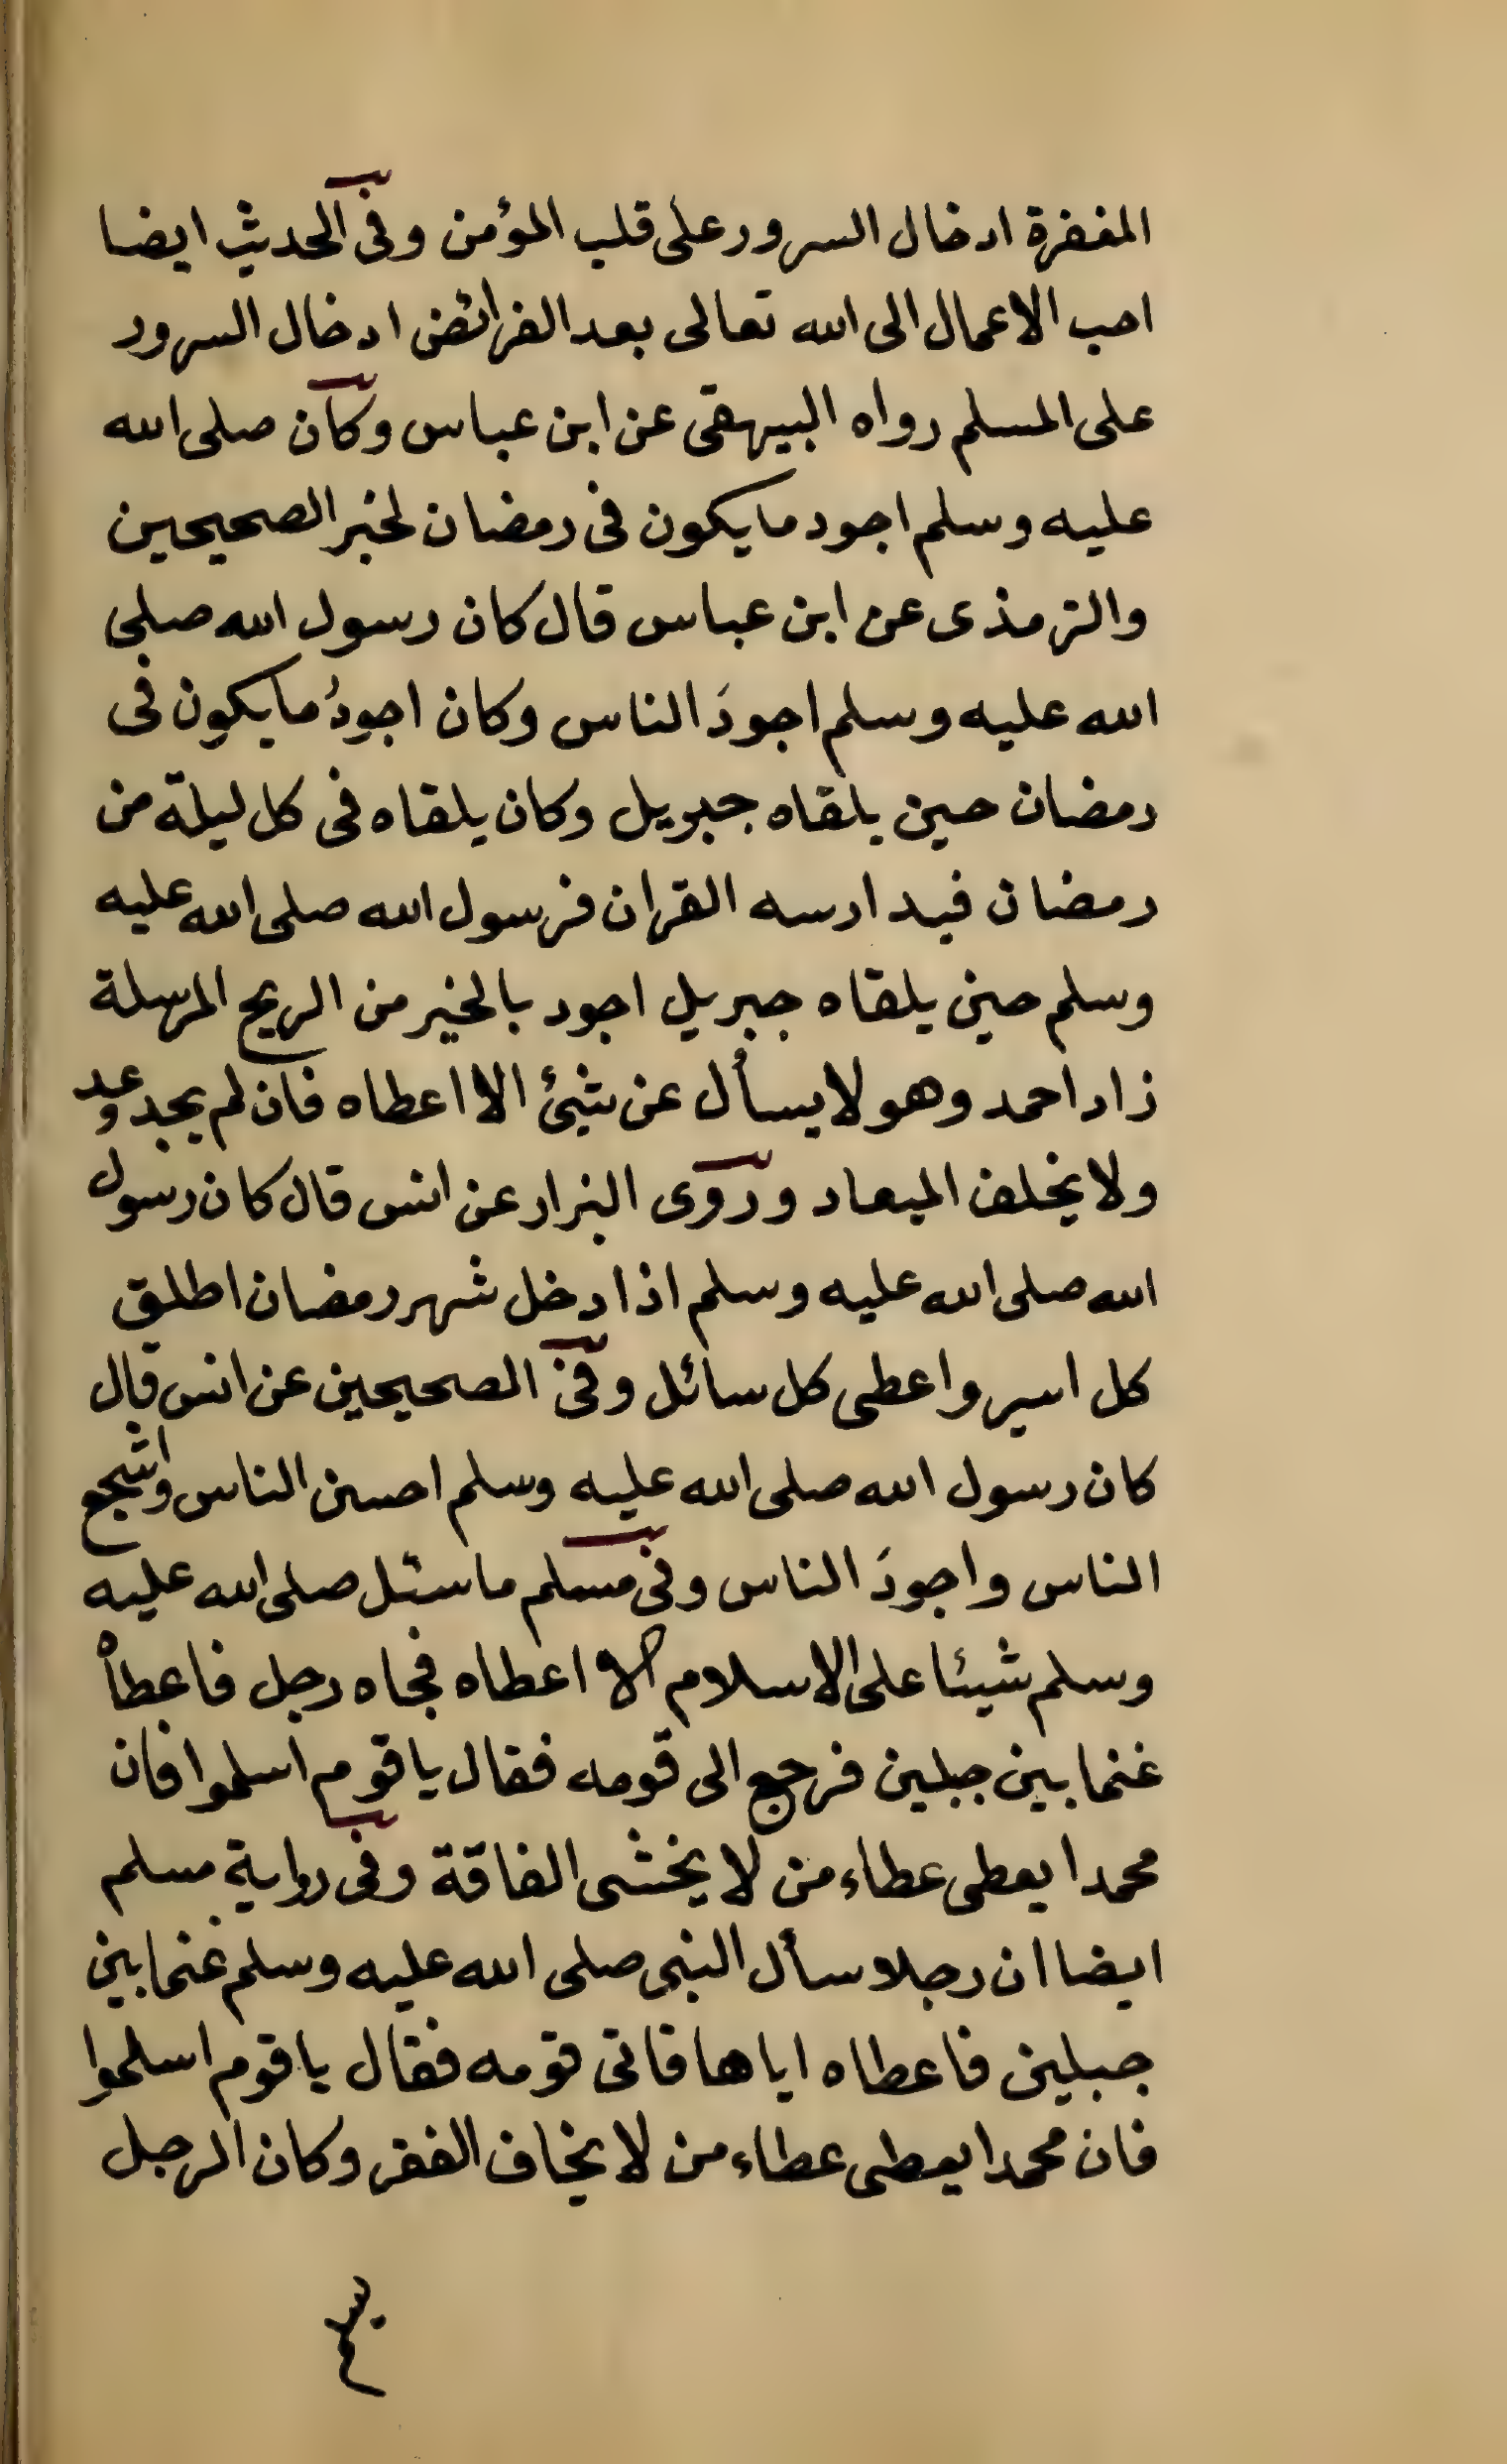 المغفرة ادخال السرور على قلب المؤمن وفى الحديث ايضا
احب الاعمال الى الله تعالى بعد الفرائض ادخال السرور
على المسلم رواه البيهقى عن ابن عباس وكان صلى الله
عليه وسلم اجود ما يكون فى رمضان لخبر الصحيحين
والترمذى عن ابن عباس قال كان رسول الله صلى
الله عليه وسلم اجودَ الناس وكان اجودُ ما يكون فى
رمضان حين يلقاه جبريل وكان يلقاه فى كل ليلة من
رمضان فيدارسه القران فرسول الله صلى الله عليه
وسلم حين يلقاه جبريل اجود بالخير من الريح المرسلة
زاد احمد وهو لا يسأل عن شئ الا اعطاه فان لم يجد وعد
ولا يخلف الميعاد وروى البزار عن انس قال كان رسول
الله صلى الله عليه وسلم اذا دخل شهر رمضان اطلق
كل اسير واعطى كل سائل وفى الصحيحين عن انس قال
كان رسول الله صلى الله عليه وسلم احسن الناس واشجع
الناس واجودَ الناس وفى مسلم ما سئل صلى الله عليه
وسلم شيئا على الاسلام الا اعطاه فجاه رجل فاعطاه
غنما بين جبلين فرجع الى قومه فقال يا قوم اسلموا فان
محمدا يعطى عطاء من لا يخشى الفاقة وفى رواية مسلم
ايضا ان رجلا سأل النبى صلى الله عليه وسلم غنما بين
جبلين فاعطاه اياها فاتى قومه فقال يا قوم اسلموا
فان محمدا يعطى عطاء من لا يخاف الفقر وكان الرجل
يسلم